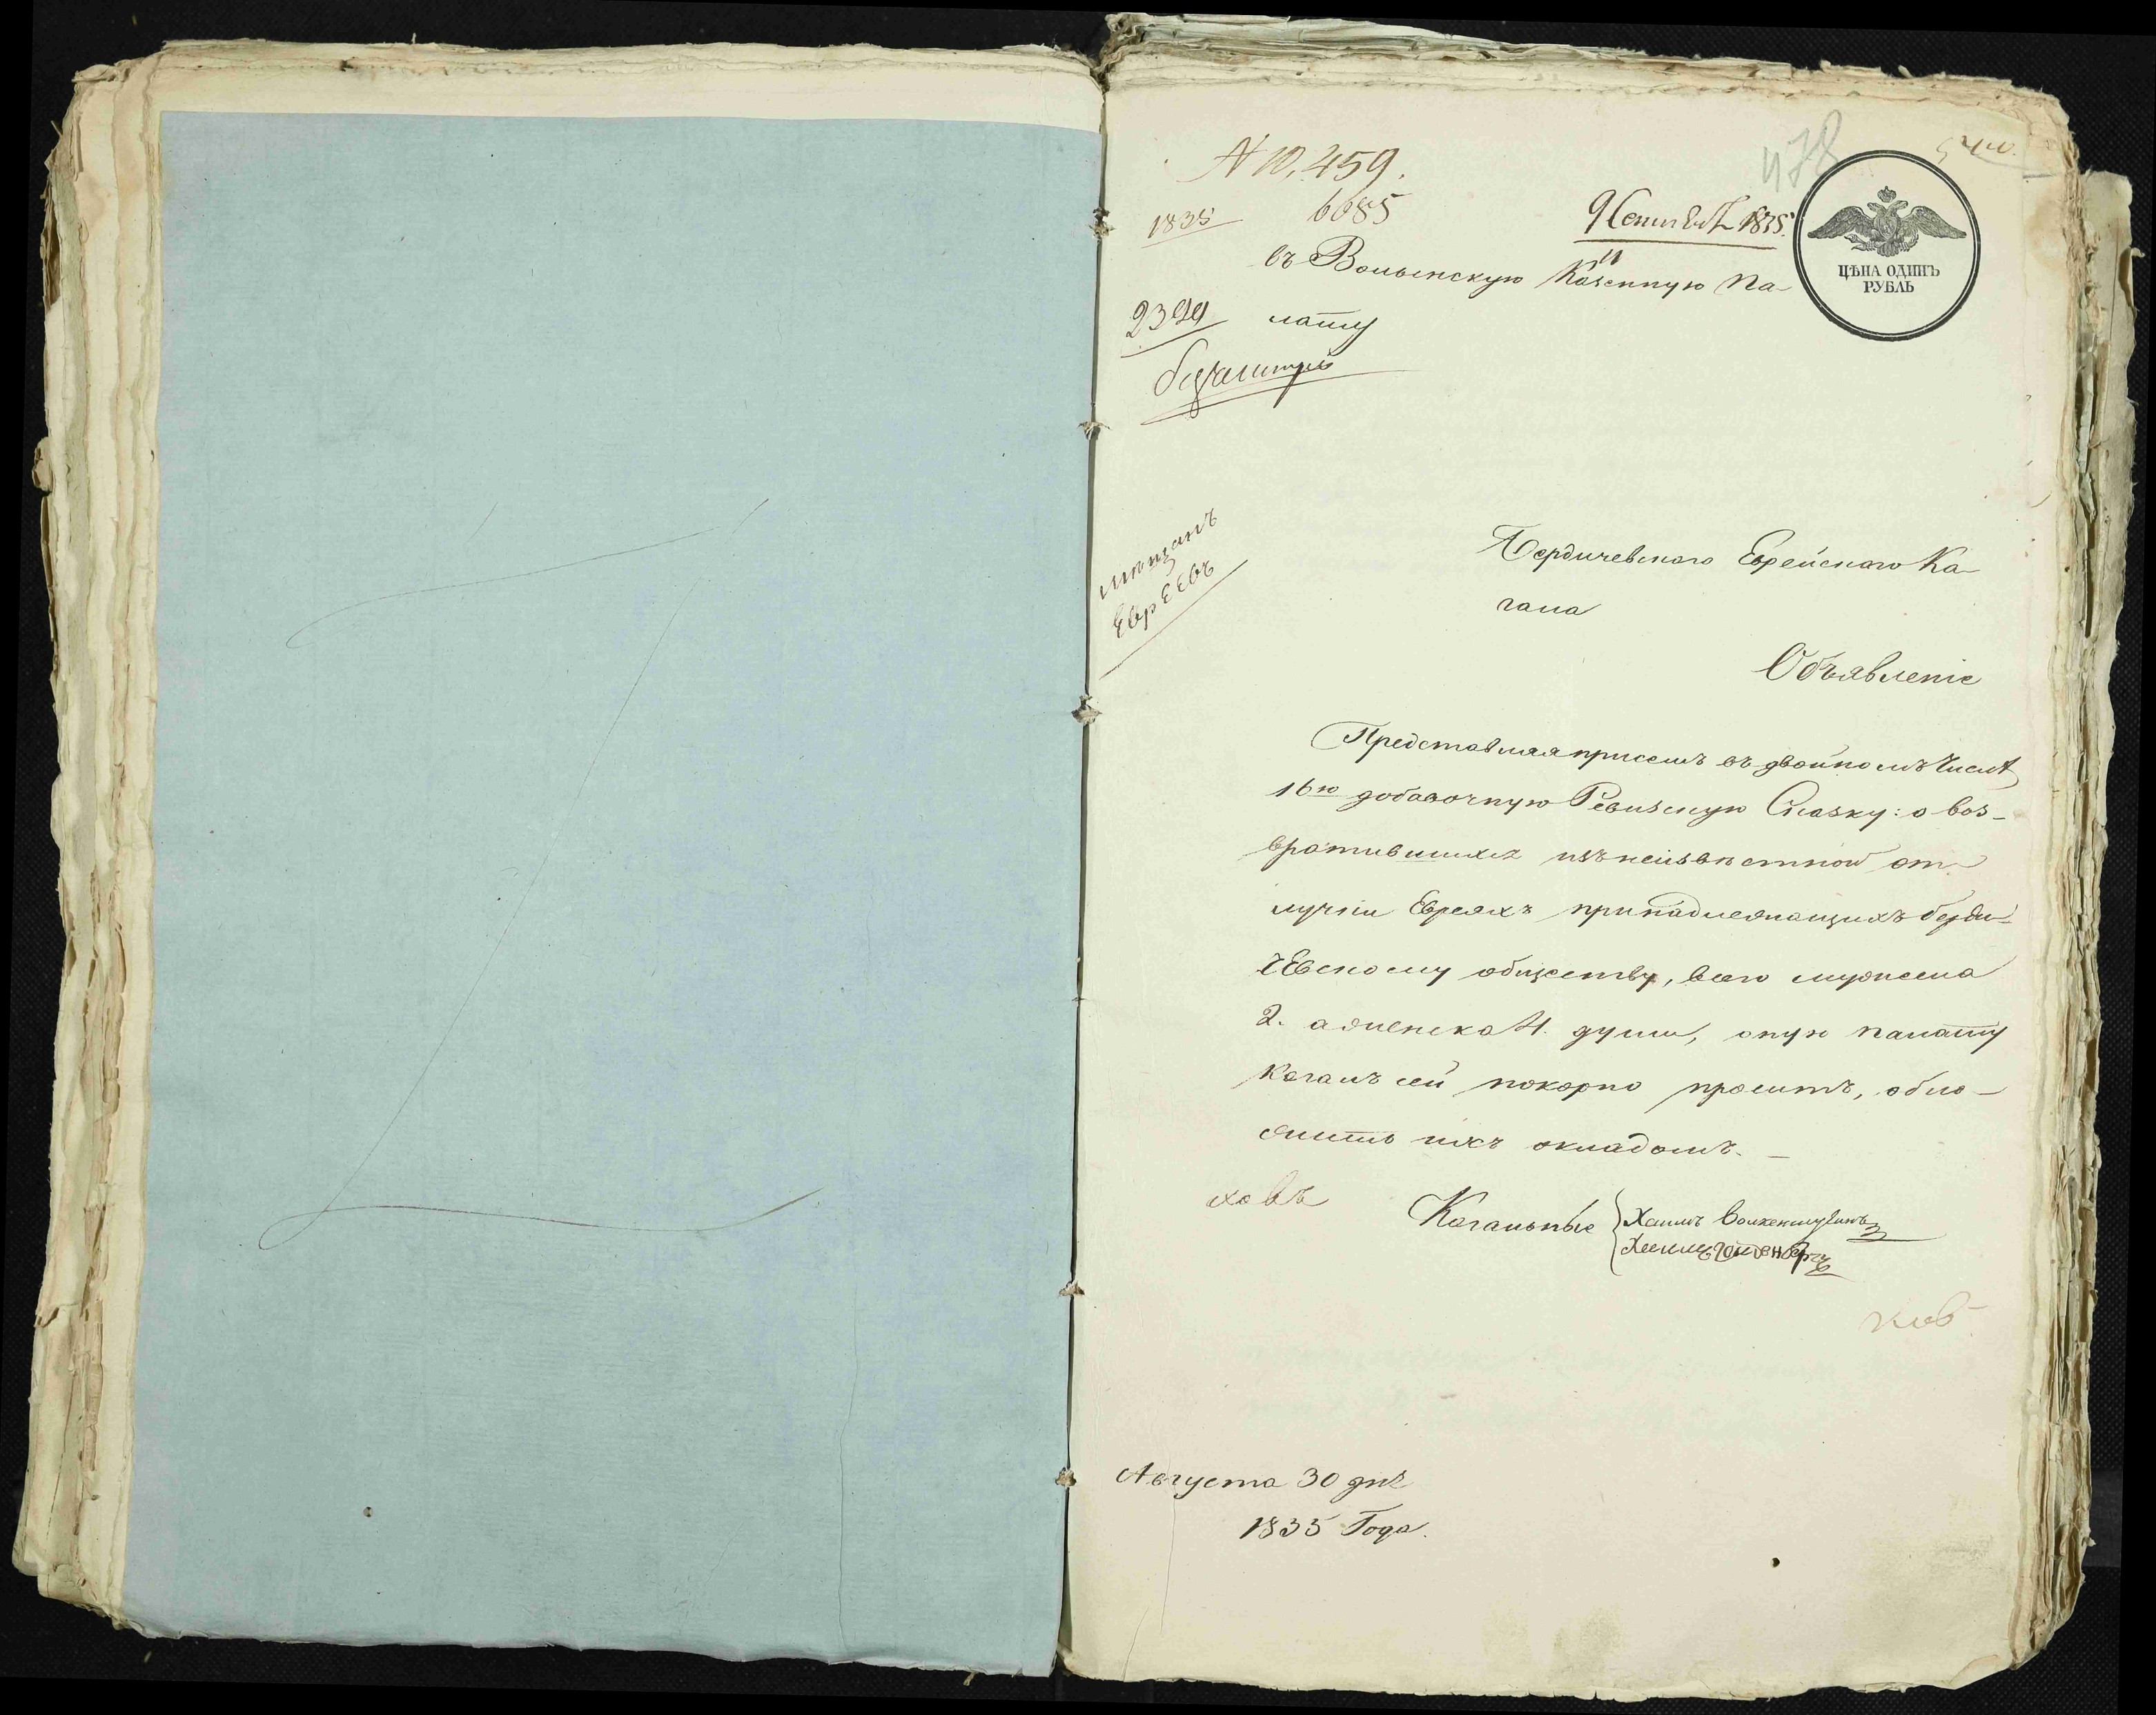 478
N 10,459.
1835 6685
9 Сентяб. 1835.
ЦѢНА ОДИНЪ
РУБЛЬ
въ Волынскую Казенную Па-
лату
2399
мѣщанъ
Евреевъ
Бердичевского Еврейского Ка-
гала
Объявленіе
Представляя присемъ въ двойномъ числѣ
16ю добавочную Ревизскую Сказку: о воз-
вратившихся изъ неизвѣстной от-
лучки Евреяхъ принадлежащихъ берди-
чевскому обществу, всего мужеска
2. а женска 4. души, оную палату
Кагалъ сей покорно проситъ, обло-
жить ихъ окладомъ.
Кагальные Хаимъ
Августа 30 дня
1835 Года.